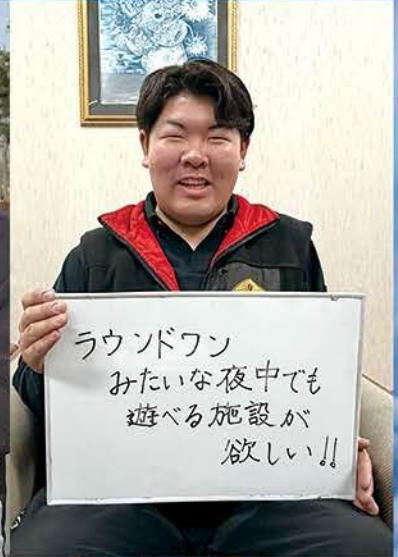 ラウンドワン
みたいな夜中でも
遊べる施設が
欲しい!!